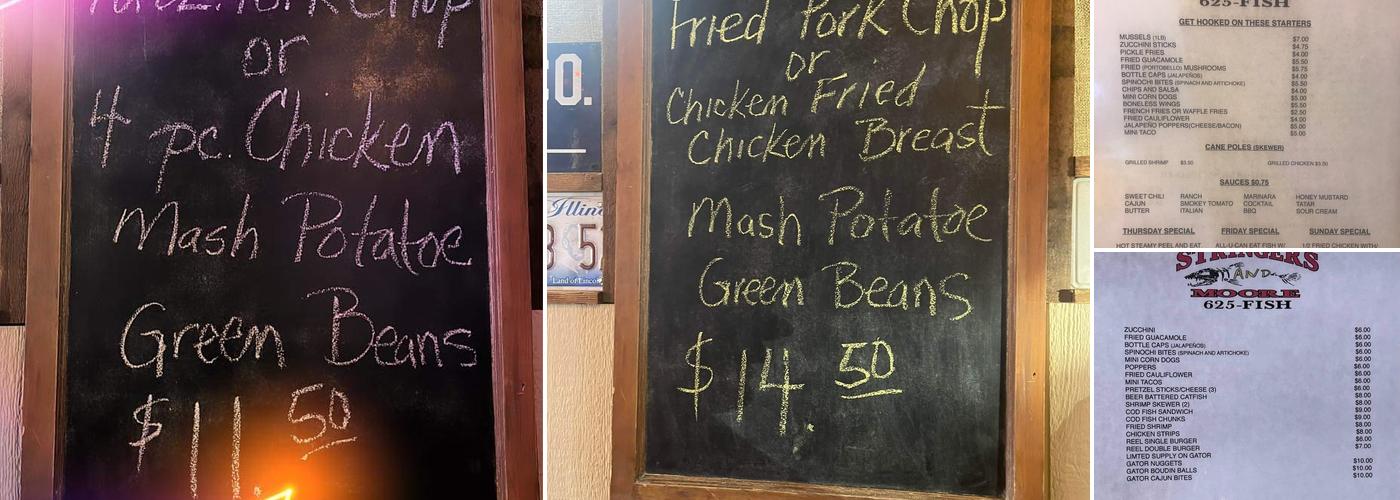 Pork Chop
or
4 pc. Chicken
Mash Potatoe
Green Beans
$11.50
Fried Pork Chop
or
Chicken Fried
Chicken Breast
Mash Potatoe
Green Beans
$14.50
0.
Illino
3 5
Land of Lincoln
625-FISH
GET HOOKED ON THESE STARTERS
MUSSELS (1LB) $7.00
ZUCCHINI STICKS $4.75
PICKLE FRIES $4.00
FRIED GUACAMOLE $5.50
FRIED (PORTOBELLO) MUSHROOMS $5.75
BOTTLE CAPS (JALAPEÑOS) $4.00
SPINOCHI BITES (SPINACH AND ARTICHOKE) $5.50
CHIPS AND SALSA $4.00
MINI CORN DOGS $5.00
BONELESS WINGS $5.50
FRENCH FRIES OR WAFFLE FRIES $2.50
FRIED CAULIFLOWER $4.00
JALAPEÑO POPPERS(CHEESE/BACON) $5.00
MINI TACO $5.00
CANE POLES (SKEWER)
GRILLED SHRIMP $3.50 GRILLED CHICKEN $3.50
SAUCES $0.75
SWEET CHILI RANCH MARINARA HONEY MUSTARD
CAJUN SMOKEY TOMATO COCKTAIL TATAR
BUTTER ITALIAN BBQ SOUR CREAM
THURSDAY SPECIAL FRIDAY SPECIAL SUNDAY SPECIAL
HOT STEAMY PEEL AND EAT ALL-U-CAN EAT FISH W/ 1/2 FRIED CHICKEN WITH
STRINGERS
AND
MOORE
625-FISH
ZUCCHINI $6.00
FRIED GUACAMOLE $6.00
BOTTLE CAPS (JALAPEÑOS) $6.00
SPINOCHI BITES (SPINACH AND ARTICHOKE) $6.00
MINI CORN DOGS $6.00
POPPERS $6.00
FRIED CAULIFLOWER $6.00
MINI TACOS $6.00
PRETZEL STICKS/CHEESE (3) $6.00
BEER BATTERED CATFISH $8.00
SHRIMP SKEWER (2) $8.00
COD FISH SANDWICH $9.00
COD FISH CHUNKS $9.00
FRIED SHRIMP $8.00
CHICKEN STRIPS $8.00
REEL SINGLE BURGER $6.00
REEL DOUBLE BURGER $7.00
LIMTED SUPPLY ON GATOR
GATOR NUGGETS $10.00
GATOR BOUDIN BALLS $10.00
GATOR CAJUN BITES $10.00